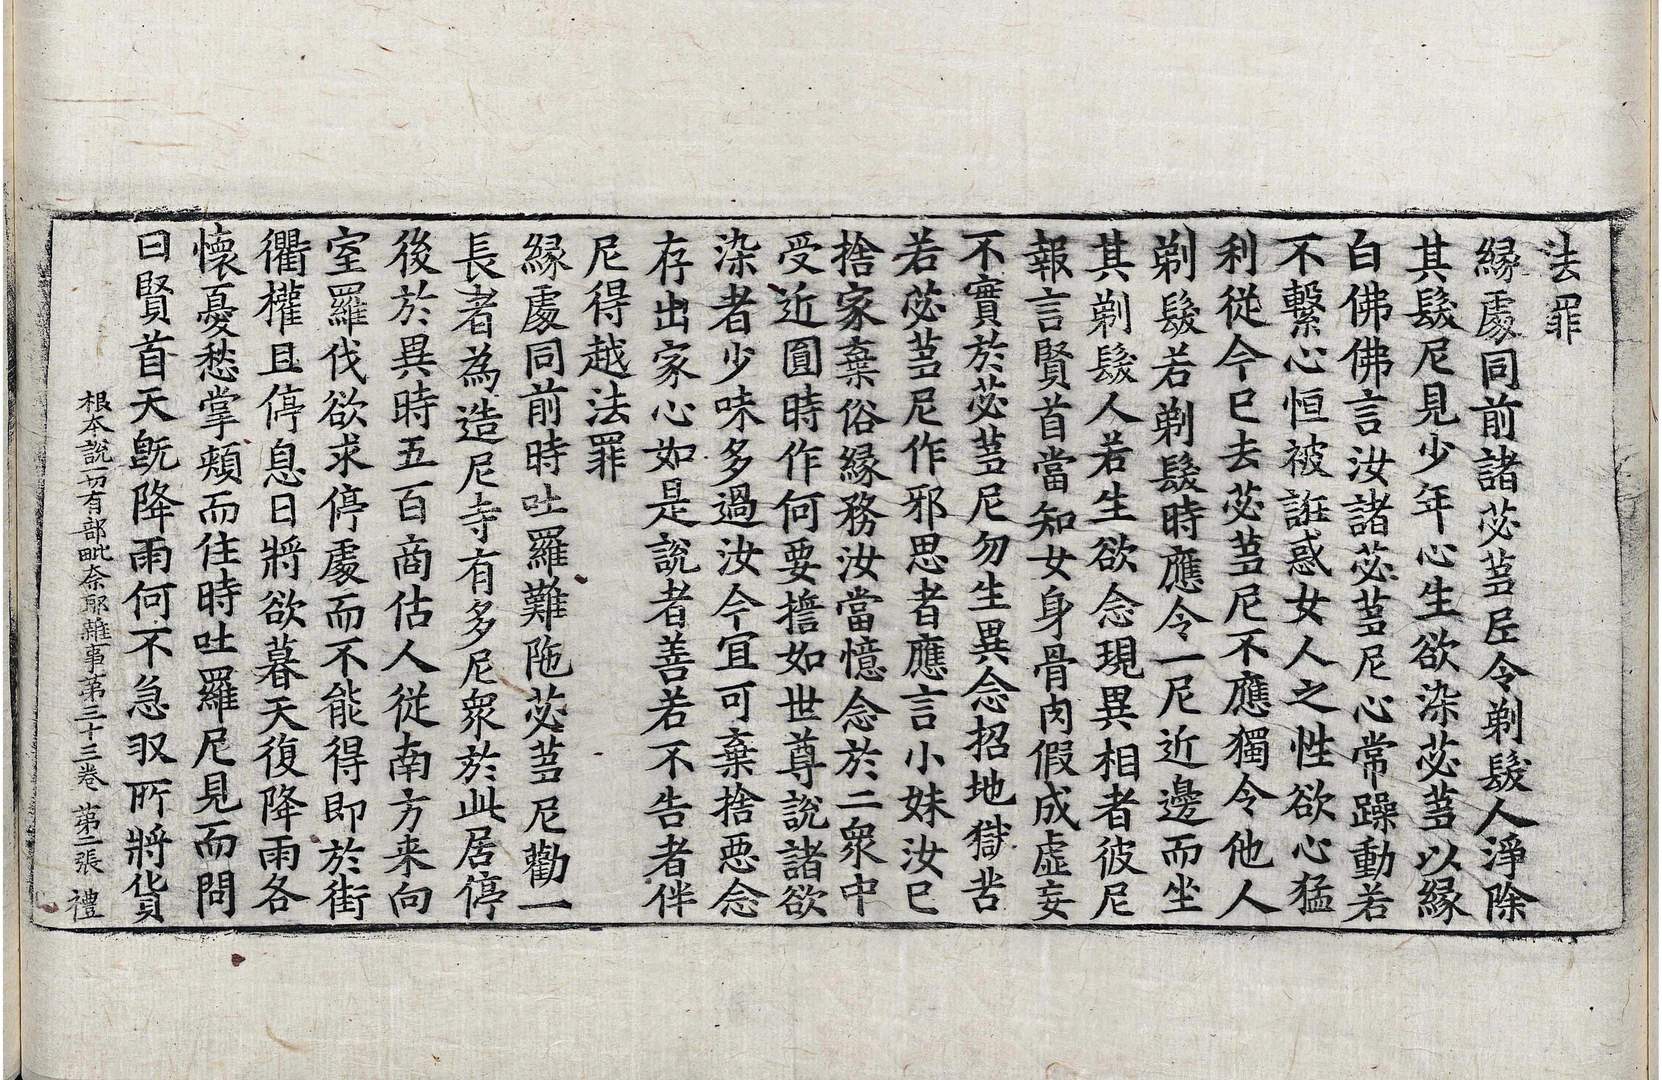 法罪
緣處同前諸苾芻尼令剃髮人淨除
其髮尼見少年心生欲染苾芻以緣
白佛佛言汝諸苾芻尼心常躁動若
不繫心恒被誑惑女人之性欲心猛
利從今已去苾芻尼不應獨令他人
剃髮若剃髮時應令一尼近邊而坐
其剃髮人若生欲念現異相者彼尼
報言賢首當知女身骨肉假成虛妄
不實於苾芻尼勿生異念招地獄苦
若苾芻尼作邪思者應言小妹汝已
捨家棄俗緣務汝當憶念於二衆中
受近圓時作何要擔如世尊說諸欲
染者少味多過汝今宜可棄捨惡念
存出家心如是說者善若不告者伴
尼得越法罪
緣處同前時吐羅難陁苾芻尼勸一
長者為造尼寺有多尼衆於此居停
後於異時五百商估人從南方来向
室羅伐欲求停處而不能得即於街
衢權且停息日將欲暮天復降雨各
懷憂愁掌頰而住時吐羅尼見而問
曰賢首天旣降雨何不急収所將貨
根本說一切有部毗奈耶雜事第三十三卷 第二張 禮